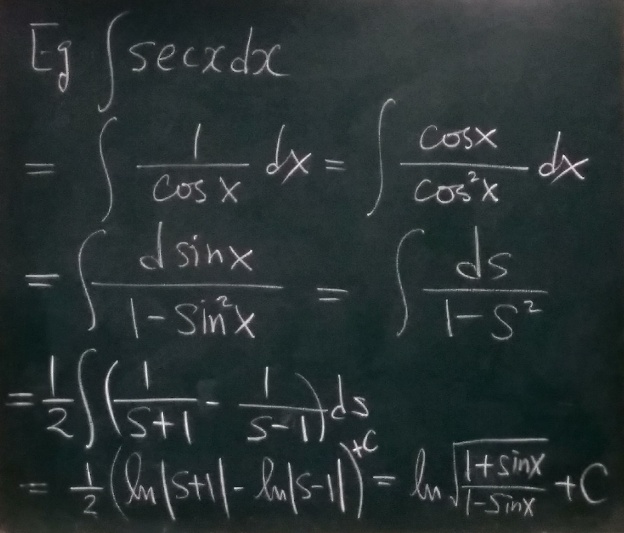 Eg ∫ secx dx
= ∫ 1/cos x dx = ∫ cosx/cos²x dx
= ∫ d sinx/(1-sin²x) = ∫ ds/(1-s²)
= 1/2 ∫ (1/(s+1) - 1/(s-1)) ds
= 1/2 (ln|s+1| - ln|s-1|) +C = ln √((1+sinx)/(1-sinx)) + C